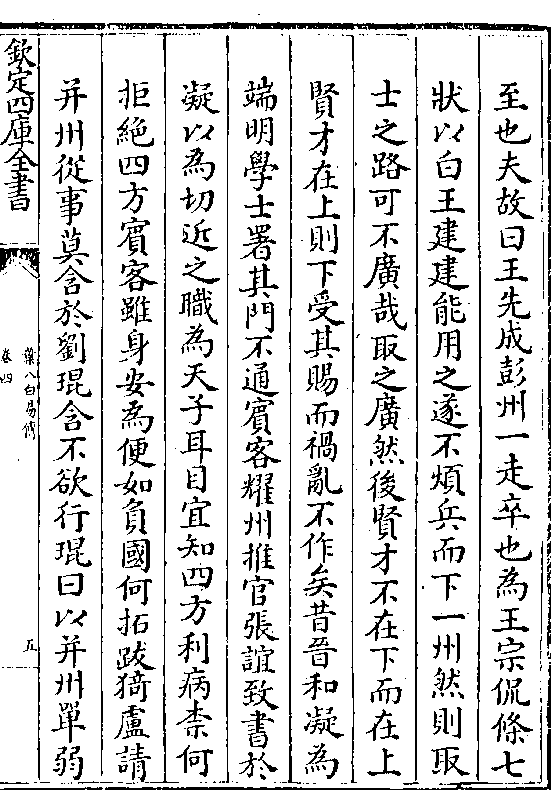 至也夫故曰王先成彭州一走卒也為王宗侃條七
狀以白王建建能用之遂不煩兵而下一州然則取
士之路可不廣哉取之廣然後賢才不在下而在上
賢才在上則下受其賜而禍亂不作矣昔晉和凝為
端明學士署其門不通賓客耀州推官張誼致書於
凝以為切近之職為天子耳目宜知四方利病柰何
拒絶四方賓客雖身安為便如負國何拓跋猗盧請
并州從事莫含於劉琨含不欲行琨曰以并州單弱
欽定四庫全書
葉八白易傳
卷四
五